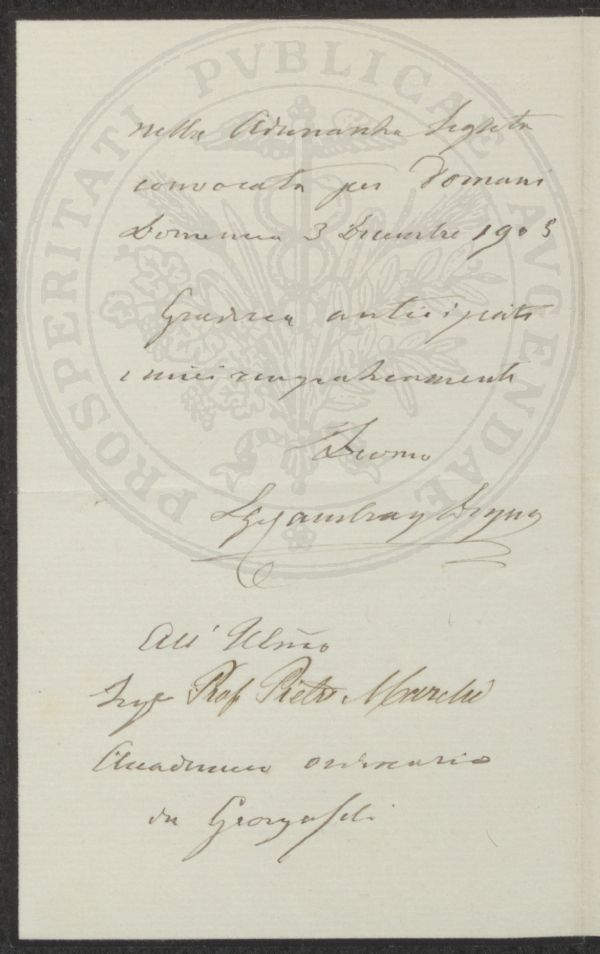 PROSPERITATI PVBLICAE AVGENDAE
nella Adunanza Segreta
convocata per Domani
Domenica 3 Decembre 1905
Gradisca anticipati
i miei ringraziamenti
Devmo
All' Illmo
Prof. Pietro Marchi
Accademico ordinario
dei Georgofili